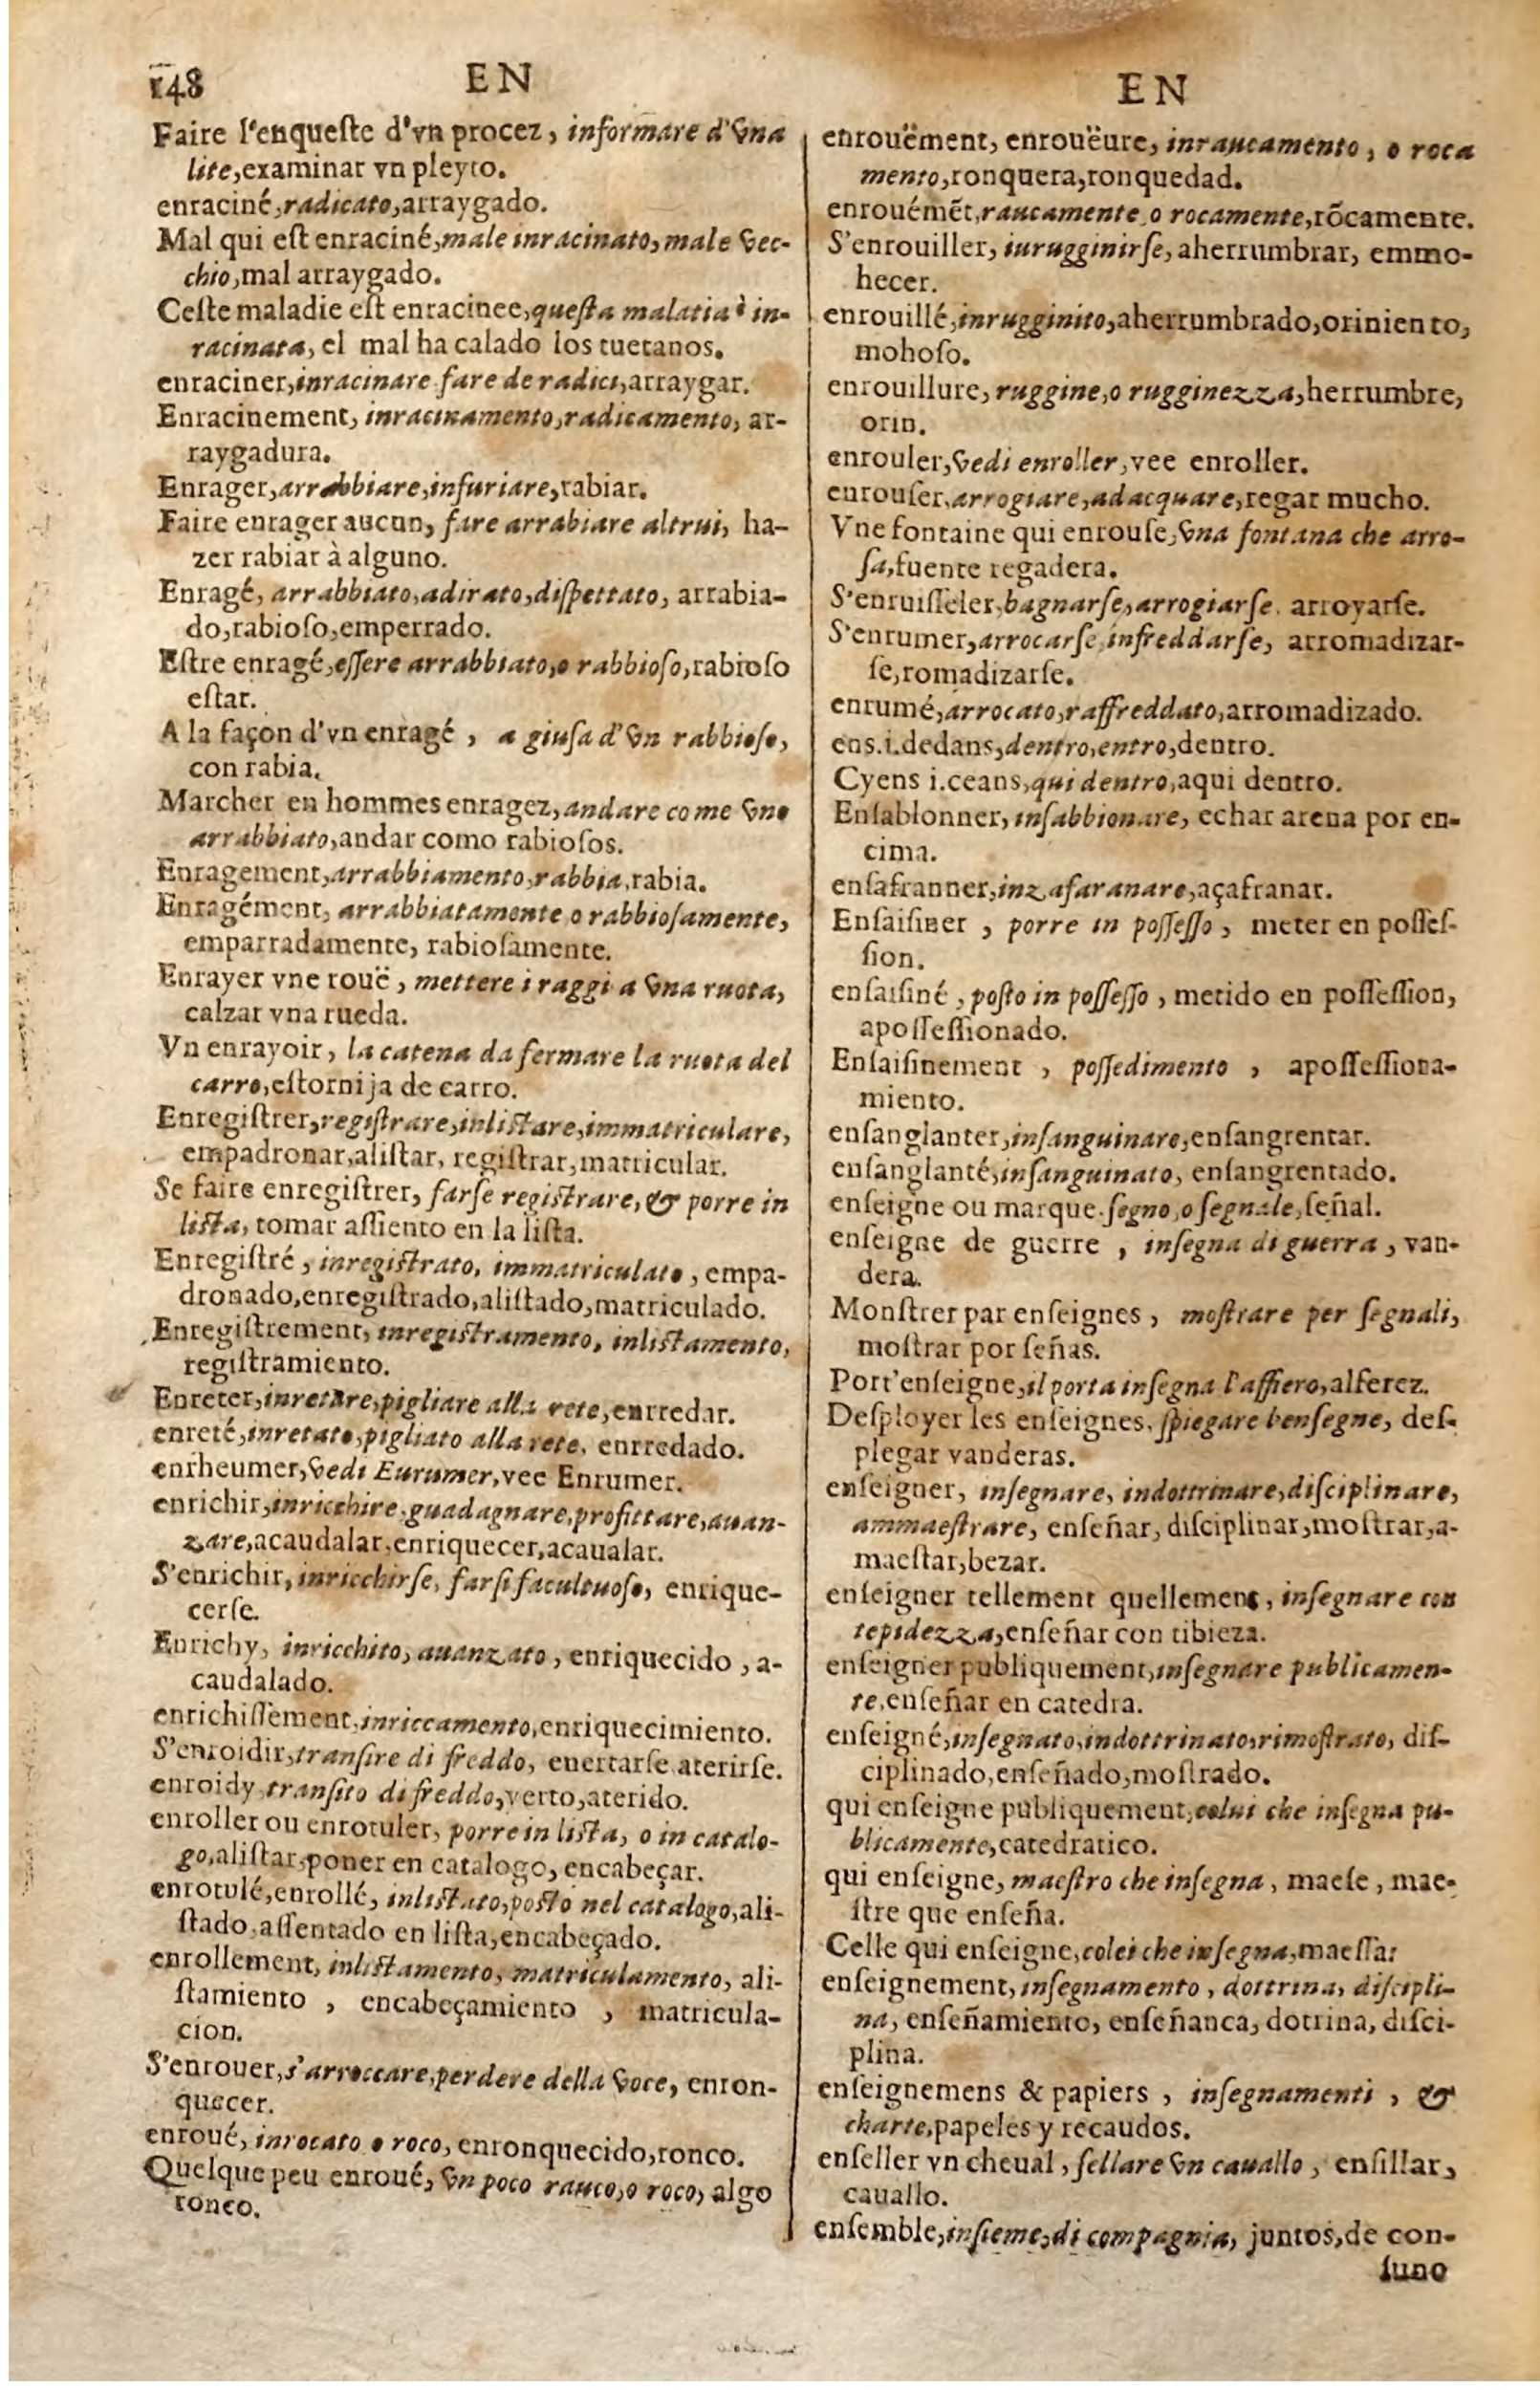 148 EN
Faire l'enqueſte d'vn procez, informare d'vna
lite,examinar vn pleyto.
enraciné,radicato,arraygado.
Mal qui eſt enraciné,male inracinato,male vec-
chio,mal arraygado.
Ceſte maladie eſt enracinee,queſta malatia è in-
racinata, el mal ha calado los tuetanos.
enraciner,inracinare fare de radici,arraygar.
Enracinement, inracinamento,radicamento, ar-
raygadura.
Enrager,arrabbiare,infuriare,rabiar.
Faire enrager aucun, fare arrabiare altrui, ha-
zer rabiar à alguno.
Enragé, arrabbiato,adirato,diſpettato, arrabia-
do,rabioſo,emperrado.
Eſtre enragé,eſſere arrabbiato,o rabbioſo,rabioſo
eſtar.
A la façon d'vn enragé, a giuſa d'vn rabbioſo,
con rabia.
Marcher en hommes enragez,andare come vno
arrabbiato,andar como rabioſos.
Enragement,arrabbiamento,rabbia,rabia.
Enragément, arrabbiatamente o rabbioſamente,
emparradamente, rabioſamente.
Enrayer vne rouë, mettere i raggi a vna ruota,
calzar vna rueda.
Vn enrayoir, la catena da fermare la ruota del
carro,eſtornija de carro.
Enregiſtrer,regiſtrare,inliſtare,immatriculare,
empadronar,aliſtar, regiſtrar,matricular.
Se faire enregiſtrer, farſe regiſtrare, & porre in
liſta, tomar aſſiento en la liſta.
Enregiſtré, inregiſtrato, immatriculato, empa-
dronado,enregiſtrado,aliſtado,matriculado.
Enregiſtrement, inregiſtramento, inliſtamento,
regiſtramiento.
Enreter,inretare,pigliare alla rete,enrredar.
enreté,inretato,pigliato alla rete, enrredado.
enrheumer,vedi Eurumer,vee Enrumer.
enrichir,inricchire,guadagnare,profittare,auan-
zare,acaudalar,enriquecer,acaualar.
S'enrichir, inricchirſe, farſi facultuoſo, enrique-
cerſe.
Enrichy, inricchito, auanzato, enriquecido, a-
caudalado.
enrichiſſement,inriccamento,enriquecimiento.
S'enroidir,tranſire di freddo, enertarſe aterirſe.
enroidy tranſito di freddo,yerto,aterido.
enroller ou enrotuler, porre in liſta, o in catalo-
go,aliſtar,poner en catalogo, encabeçar.
enrotulé,enrollé, inliſtato,poſto nel catalogo,ali-
ſtado,aſſentado en liſta,encabeçado.
enrollement, inliſtamento, matriculamento, ali-
ſtamiento, encabeçamiento, matricula-
cion.
S'enrouer,s'arroccare,perdere della voce, enron-
quecer.
enroué, inrocato o roco, enronquecido,ronco.
Quelque peu enroué, vn poco rauco,o roco, algo
ronco.
EN
enrouëment, enrouëure, inraucamento, o roca
mento,ronquera,ronquedad.
enrouémēt,raucamente o rocamente,rõcamente.
S'enrouiller, iurugginirſe, aherrumbrar, emmo-
hecer.
enrouillé,inrugginito,aherrumbrado,oriniento,
mohoſo.
enrouillure, ruggine,o rugginezza,herrumbre,
orin.
enrouler,vedi enroller,vee enroller.
enrouſer,arrogiare,adacquare,regar mucho.
Vne fontaine qui enrouſe,vna fontana che arro-
ſa,fuente regadera.
S'enruiſſeler,bagnarſe,arrogiarſe, arroyarſe.
S'enrumer,arrocarſe,infreddarſe, arromadizar-
ſe,romadizarſe.
enrumé,arrocato,raffreddato,arromadizado.
ens.i.dedans,dentro,entro,dentro.
Cyens i.ceans,qui dentro,aqui dentro.
Enſablonner, inſabbionare, echar arena por en-
cima.
enſafranner,inzafaranare,açafranar.
Enſaiſiner, porre in poſſeſſo, meter en poſſeſ-
ſion.
enſaiſiné, poſto in poſſeſſo, metido en poſſeſſion,
apoſſeſſionado.
Enſaiſinement, poſſedimento, apoſſeſſiona-
miento.
enſanglanter,inſanguinare,enſangrentar.
enſanglanté,inſanguinato, enſangrentado.
enſeigne ou marque.ſegno,o ſegnale,ſeñal.
enſeigne de guerre, inſegna di guerra, van-
dera.
Monſtrer par enſeignes, moſtrare per ſegnali,
moſtrar por ſeñas.
Port'enſeigne,il porta inſegna l'affiero,alferez.
Deſployer les enſeignes, ſpiegare benſegne, deſ-
plegar vanderas.
enſeigner, inſegnare, indottrinare,diſciplinare,
ammaeſtrare, enſeñar, diſciplinar,moſtrar,a-
maeſtar,bezar.
enſeigner tellement quellement, inſegnare con
tepidezza,enſeñar con tibieza.
enſeigner publiquement,inſegnare publicamen-
te,enſeñar en catedra.
enſeigné,inſegnato,indottrinato,rimoſtrato, diſ-
ciplinado,enſeñado,moſtrado.
qui enſeigne publiquement,colui che inſegna pu-
blicamente,catedratico.
qui enſeigne, maeſtro che inſegna, maeſe, mae-
ſtre que enſeña.
Celle qui enſeigne,colei che inſegna,maeſſa:
enſeignement,inſegnamento, dottrina, diſcipli-
na, enſeñamiento, enſeñanca, dotrina, diſci-
plina.
enſeignemens & papiers, inſegnamenti, &
charte,papeles y recaudos.
enſeller vn cheual, ſellare vn cauallo, enſillar,
cauallo.
enſemble,inſieme,di compagnia, juntos,de con-
ſuno